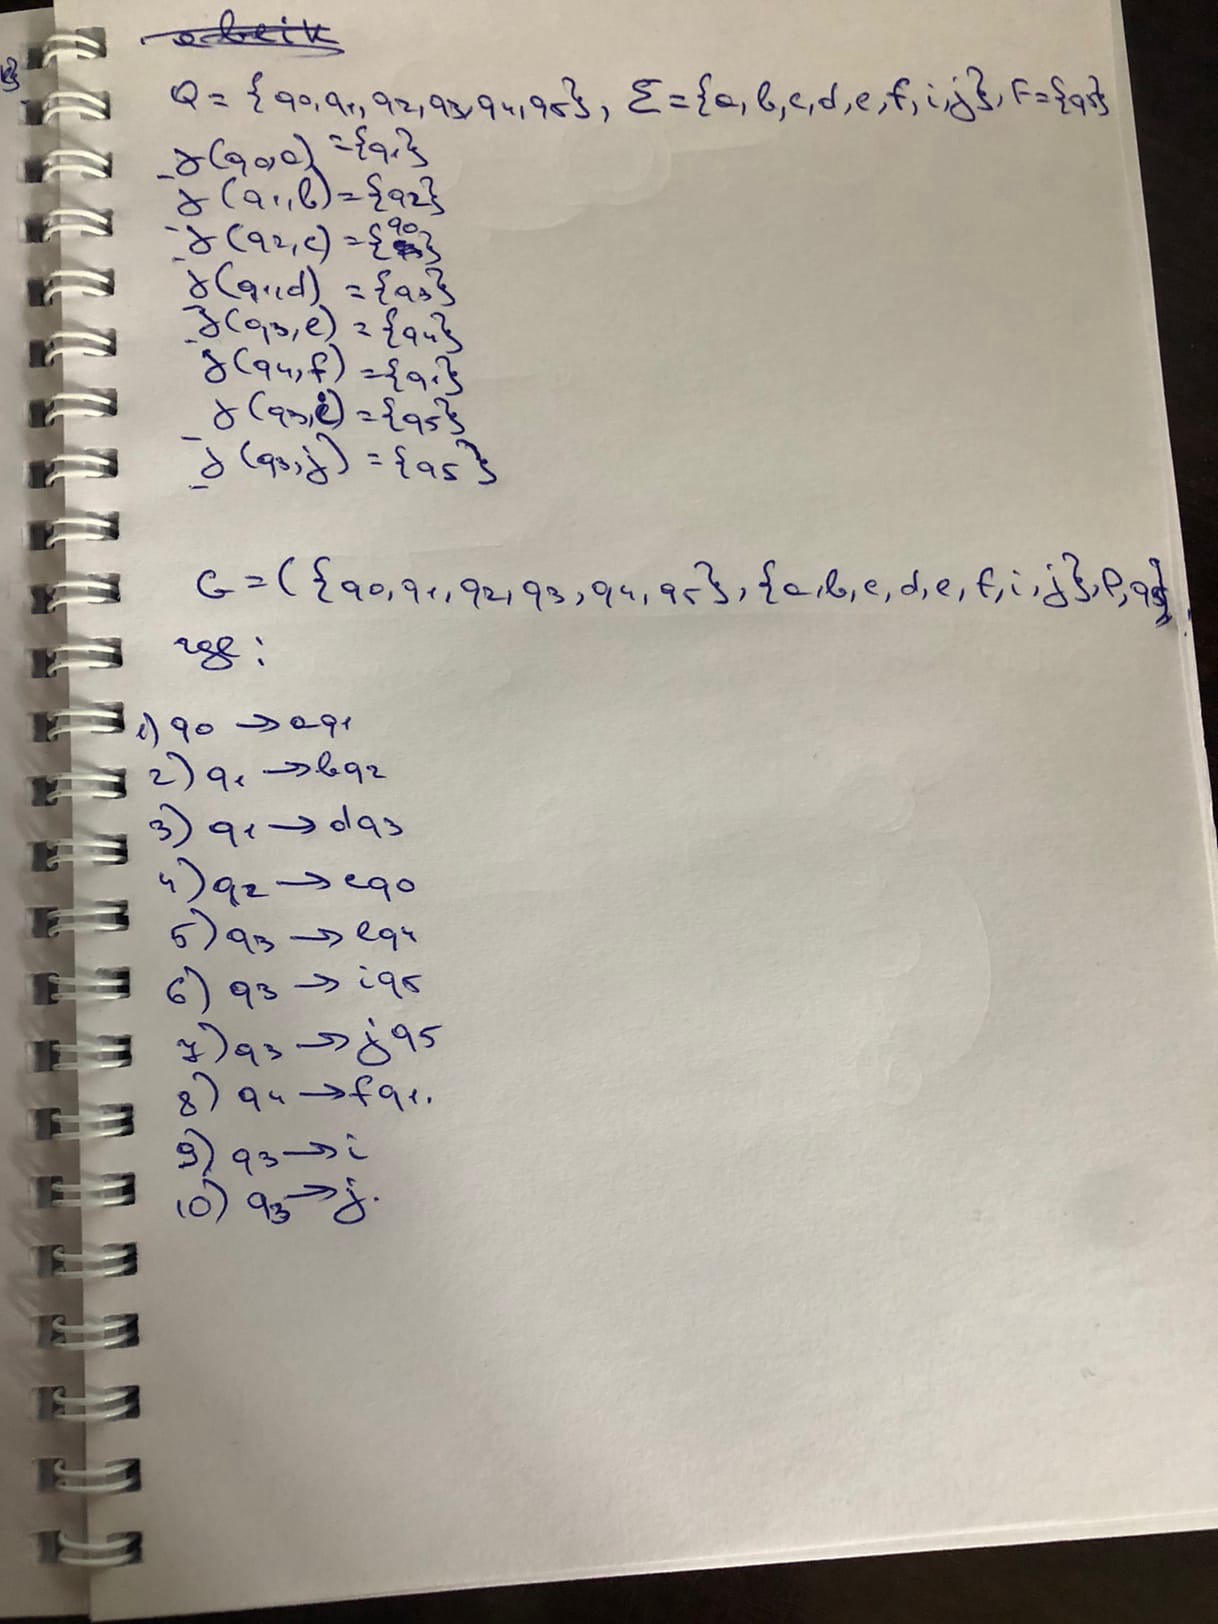 Q = {q0, q1, q2, q3, q4, q5}, Σ = {a, b, c, d, e, f, i, j}, F = {q5}
γ(q0, a) = {q1}
γ(q1, b) = {q2}
γ(q2, c) = {q0}
γ(q1, d) = {q3}
γ(q3, e) = {q4}
γ(q4, f) = {q1}
γ(q3, i) = {q5}
γ(q3, j) = {q5}
G = ({q0, q1, q2, q3, q4, q5}, {a, b, c, d, e, f, i, j}, P, q0)
где:
1) q0 → aq1
2) q1 → bq2
3) q1 → dq3
4) q2 → cq0
5) q3 → eq4
6) q3 → iq5
7) q3 → jq5
8) q4 → fq1.
9) q3 → i
10) q3 → j.